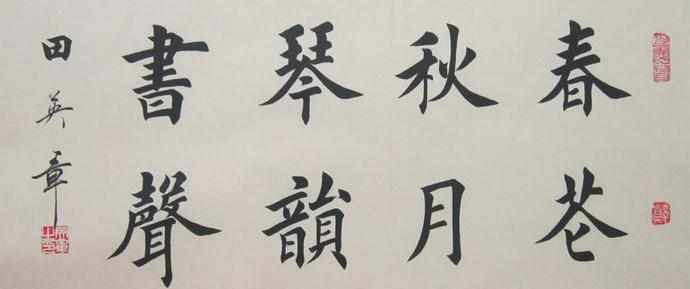 春花
秋月
琴韻
書聲
田英章